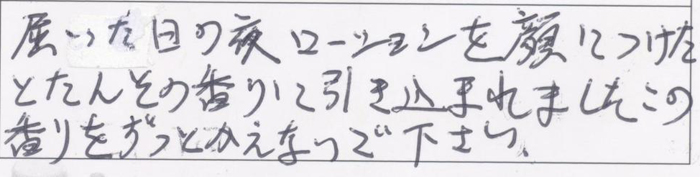 届いた日の夜ローションを顔につけた
とたんその香りに引き込まれましたこの
香りをずっとかえないで下さい。